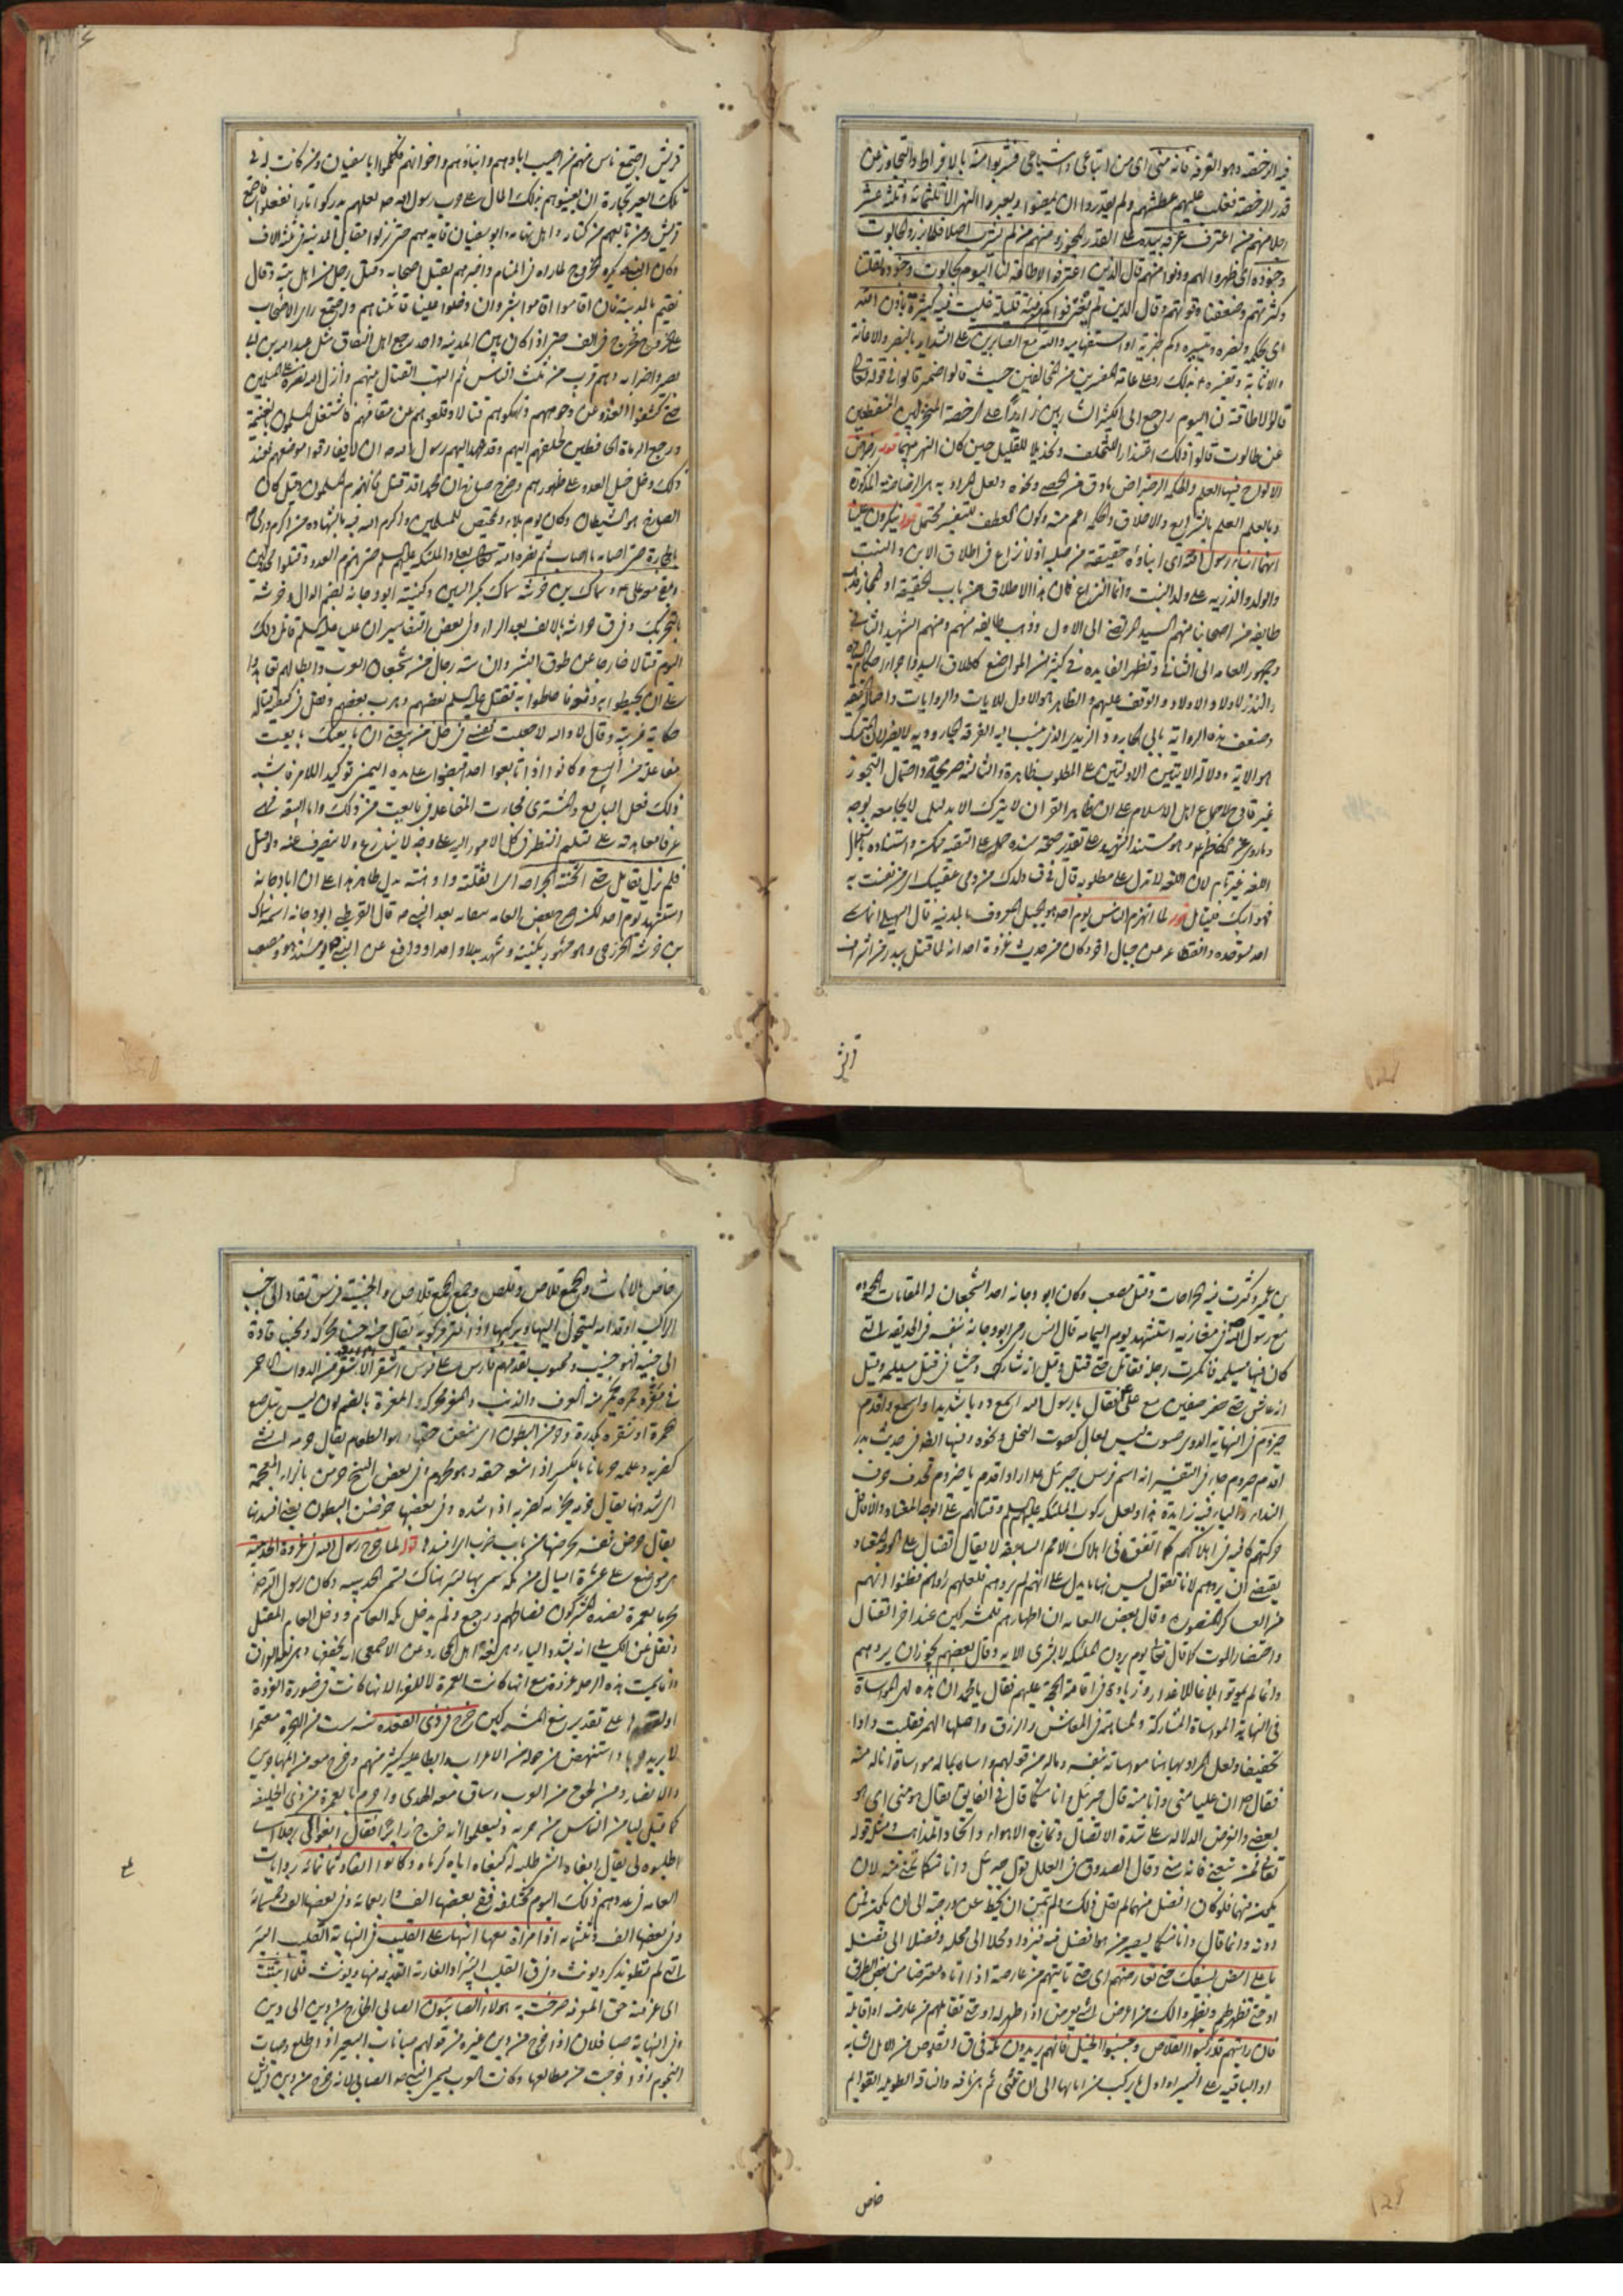 فيه الرخصة وهو الغرفة فانه منى اى من اتباعى واشياعى فشربوا منه بالافراط والتجاوز عن
قدر الرخصة فغلب عليهم عطشهم ولم يقدروا ان يمضوا ويعبروا النهر الا ثلثمائة وثلثة عشر
رجلا منهم من اعترف غرفة بيده على القدر المجوز ومنهم من لم يشرب اصلا فلما برزوا لجالوت
وجنوده اى ظهروا لهم ودنوا منهم قال الذين اغترفوا لا طاقة لنا اليوم بجالوت وجنوده لقلتنا
وكثرتهم وضعفنا وقوتهم وقال الذين لم يغترفوا كم من فئة قليلة غلبت فئة كثيرة باذن الله
اى بحكمه ونصره وتيسيره وكم خبرية او استفهامية والله مع الصابرين على الشدايد بالنصر والاعانة
والاثابة وتفسيره بذلك رد على عامة المفسرين من المخالفين حيث قالوا ضمير قالوا فى قوله تعالى
قالوا لا طاقة لنا اليوم راجع الى الكثير الشاربين زايدا على الرخصة المنخزلين المنقطعين
عن طالوت قالوا ذلك اعتذارا للتخلف وتخذيلا للقليل حين كان النهر بينهما قوله رضراض
الالواح فيها العلم والحكمة الرضراض مادق من الحصى ونحوه ولعل المراد به هنا
وبالعلم العلم بالشرايع والاخلاق والحكمة اعم منه وكون العطف للتفسير محتمل قوله ينكرون علينا
انهما ابنا رسول الله اى ابناؤه حقيقة من صلبه اذ لا نزاع فى اطلاق الابن والبنت
والولد والذرية على ولد البنت وانما النزاع فى ان هذا الاطلاق من باب الحقيقة او المجاز فذهب
طايفة من اصحابنا منهم السيد المرتضى الى الاول وذهب طايفة منهم ومنهم الشهيد الثانى
وجمهور العامة الى الثانى وتظهر الفايدة فى كثير من المواضع كاطلاق السيد واجراء احكام
والنذر لاولاد الاولاد والوقف عليهم والظاهر هو الاول للايات والروايات واصالة الحقيقة
وضعف هذه الرواية بابى الجارود الزيدى الذى ينسب اليه الفرقة الجارودية لا يضر لان المتمسك
هو الاية ودلالة الايتين الاولتين على المطلوب ظاهرة والثالثة صريحة واحتمال التجوز
غير قادح لاجماع اهل الاسلام على ان ظاهر القران لا يترك الا بدليل لا يجامعه بوجه
وماروى عن الكاظم ع وهو مستند المشهور على تقدير صحة سنده حمل على التقية ممكنة واستناده باهل
اللغة غير تام لان اللغة لا تدل على مطلوبه قال فى ق ولدك من دمى عقبيك اى من نفست به
فهو ابنك قوله لما انهزم الناس يوم احد هو الجبل المعروف بالمدينة قال السهيلى انما سمى
احد لتوحده وانقطاعه عن جبال اخر وكان من حديث غزوة احد انه لما قتل ببدر من اشراف
قريش
قريش اجتمع ناس منهم من اصيب اباؤهم وابناؤهم واخوانهم فكلموا ابا سفيان ومن كانت له فى
تلك العير تجارة ان يعينوهم بذلك المال على حرب رسول الله ص لعلهم يدركوا ثارا ففعلوا فاجتمع
قريش ومن تابعهم من كنانة واهل تهامة وابو سفيان قايدهم حتى نزلوا مقابل المدينة فى ثلثة الاف
وكان النبى ص يكره الخروج لما راه فى المنام واخبرهم بقتل اصحابه وقتل رجل من اهل بيته وقال
نقيم بالمدينة فان اقاموا اقاموا بشر وان دخلوا علينا قاتلناهم واجتمع راى الاصحاب
على الخروج فخرج فى الف حتى اذا كان بين المدينة واحد رجع اهل النفاق مثل عبد الله بن ابى
بصير واضرابه وهم قريب من ثلث الناس ثم التهب القتال بينهم وانزل الله نصره على المسلمين
حتى كشفوا العدو عن وجوههم وانهكوهم قتلا وقلعوهم عن مقامهم فاشتغل المسلمون بالغنيمة
ورجع الرماة المحافظين لخلفهم اليهم وقد عهد اليهم رسول الله ص ان لا يفارقوا موضعهم فعند
ذلك دخل خيل العدو على ظهورهم وصرخ صارخ ان محمدا قد قتل فانهزم المسلمون وقيل كان
الصارخ هو الشيطان وكان يوم بلاء وتمحيص للمسلمين واكرم الله فيه بالشهادة من اكرم ورمى
بالحجارة حتى اصابه ما اصابه ثم نصره الله تعالى بعلى والملئكة عليهم السلم حتى انهزم العدو وقتلوا
وبقى معه على ع وسماك بن خرشة سماك بكسر السين وكنيته ابو دجانة بضم الدال وخرشة
بالتحريك وفى ق خراشة بالالف بعد الراء وفى بعض التفاسير ان عليا عليه السلم قاتل ذلك
اليوم قتالا خارجا عن طوق البشر وان ستة رجال من شجعان العرب وابطالهم تعاهدوا
على ان يحيطوا به دفعة فاحاطوا به فقتل عليه السلم بعضهم وهرب بعضهم ونقل فى كيفية قتاله
حكاية غريبة وقال لا والله لا جعلت نفسى فى حل من بيعتى ان بايعتك بايعت
مفاعلة من البيع وكانوا اذا تابعوا احدا قبضوا على يده اليمنى توكيدا للامر فاشبه
ذلك فعل البايع والمشترى فجاءت المفاعلة فى بايعت من ذلك واما البيعة فهى
عرفا معاهدته على تسليم النظر فى كل الامور اليه على وجه لا ينازع ولا ينصرف عنه
فلم يزل يقاتل حتى اثخنته الجراحة اى اثقلته واوهنته يدل ظاهر هذا على ان ابا دجانة
استشهد يوم احد لكن صرح بعض العامة ببقائه بعد النبى ص قال القرطبى ابو دجانة اسمه سماك
بن خرشة الخزرجى وهو مشهور بكنيته وشهد بدرا واحدا ودافع عن النبى ص يومئذ هو ومصعب
بن عمير وكثرت فيه الجراحات وقتل مصعب وكان ابو دجانة احد الشجعان له المقامات المحمودة
مع رسول الله ص فى مغازيه استشهد يوم اليمامة قال انس رمى ابو دجانة بنفسه فى الحديقة التى
كان فيها مسيلمة فانكسرت رجله فقاتل حتى قتل وقيل انه شارك وحشيا فى قتل مسيلمة وقيل
انه عاش حتى حضر صفين مع على ع فقال يا رسول الله اسمع دويا شديدا واسمع واقدم
حيزوم فى النهاية الدوى صوت ليس بعال كصوت النحل ونحوه وفيها ايضا فى حديث بدر
اقدم حيزوم جاء فى التفسير انه اسم فرس جبرئيل ع اراد اقدم يا حيزوم فحذف حرف
النداء والياء فيه زايدة هذا ولعل ركوب الملئكة عليهم السلم وقتالهم على الوجه المعتاد والا فاقل
حركتهم كافية فى اهلاكهم كما اتفق فى اهلاك الامم السابقة لا يقال القتال على الوجه المعتاد
يقتضى ان يروهم لانا نقول ليس فيها ما يدل على انهم لم يروهم فلعلهم راوهم فظنوا انهم
من العساكر المنصورة وقال بعض العامة ان اظهارهم للمشركين عند اخر القتال
واحتضار الموت كما قال تعالى يوم يرون الملئكة لا بشرى الاية وقال بعضهم يجوز ان يروهم
وانما لم يموتوا ابلاغا للاعذار وزيادة فى اقامة الحجة عليهم فقال يا محمد ان هذه لهى المواساة
فى النهاية المواساة المشاركة والمساهمة فى المعاش والرزق واصلها الهمز فقلبت واوا
تخفيفا ولعل المراد بها هنا مواساته بنفسه وماله من قولهم واساه بماله مواساة اناله منه
فقال ص ان عليا منى وانا منه قال جبرئيل وانا منكما قال فى الفايق يقال هو منى اى هو
بعضى والغرض الدلالة على شدة الاتصال وتمازج الاهواء واتحاد المذاهب ومثله قوله
تعالى فمن تبعنى فانه منى وقال الصدوق فى العلل قول جبرئيل وانا منكما تمنى منه لان
يكون منهما فلو كان افضل منهما لم يقل ذلك ولم يتمن ان ينحط عن درجته الى ان يكون ممن
دونه وانما قال وانا منكما ليصير ممن هو افضل منه فيزداد محلا الى محله وفضلا الى فضله
يا على امض بسيفك حتى تعارضهم اى حتى تاتيهم من عارضه اذا اتاه معترضا من بعض الطريق
او حتى تظهر لهم ويظهروا لك من اعرض الشئ يعرض اذا ظهر له او حتى تقابلهم من عارضه اذا قابله
فان رايتهم قد ركبوا القلاص وجنبوا الخيل فانهم يريدون مكة فى ق القلوص من الابل الشابة
او الباقية على السير او اول ما يركب من اناثها الى ان تثنى ثم هى ناقة والناقة الطويلة القوايم
خاص
خاص بالاناث والجمع قلايص وقلص وجمع الجمع قلاص والجنيبة فرس تقاد الى جنب
الراكب او قدامه ليتحول اليها ويركبها اذا فتر مركوبه يقال جنبه جنبا محركة ومجنبا قاده
الى جنبه فهو جنيب ومجنوب يقدمهم فارس على فرس اشقر الاشقر من الدواب الاحمر
فى مغرة حمرة يحمر منه العرف والذنب والمغر محركة والمغرة بالضم لون ليس بناصع
حمرة او شقرة بكدرة
كفربه وعلمه
اى شدوها يقال
يقال قوله لما خرج رسول الله فى غزوة الحديبية
هى موضع على عشرة اميال من مكة سمى بها لبئر هناك تسمى الحديبية وكان رسول الله ص خرج
محرما بعمرة فصده المشركون فصالحهم ورجع ولم يدخل مكة العام ودخل العام المقبل
ونقل عن الكسائى انه بتشديد الياء وهى لغة اهل الحجاز وعن الاصمعى انه بتخفيف وهى لغة العراق
وانما سميت هذه الرحلة غزوة مع انها كانت للعمرة لا للغزو لانها كانت فى صورة الغزوة
او لغزو على تقدير منع المشركين خرج فى ذى القعدة سنة ست من الهجرة معتمرا
لا يريد حربا واستنهض من حوله من الاعراب فابطا عليه كثير منهم وخرج معه من المهاجرين
والانصار ومن لحق من العرب وساق معه الهدى واحرم بالعمرة من ذى الحليفة
كما قيل ليامن الناس من حربه وليعلموا انه خرج زايرا فقال ابغونى رجلا اى
اطلبوه لى يقال ابغاه الشئ طلبه له كبغاه اياه كرماه وكانوا الفا وثمانمائة روايات
العامة فى عددهم ذلك اليوم مختلفة ففى بعضها الف واربعمائة وفى بعضها الف وخمسمائة
وفى بعضها الف وثلثمائة اذا امراة معها ابنها على القليب فى النهاية القليب البئر
التى لم تطو يذكر ويونث وفى ق القليب البئر او العادية القديمة منها ويونث فلما اثبتت
اى عرفته حق المعرفة صرخت به هؤلاء الصابئون الصابى الخارج من دين الى دين
وفى النهاية صبا فلان اذا خرج من دين غيره من قولهم صبا ناب البعير اذا طلع وصبات
النجوم اذا خرجت من مطالعها وكانت العرب تسمى النبى ص الصابى لانه خرج من دين قريش